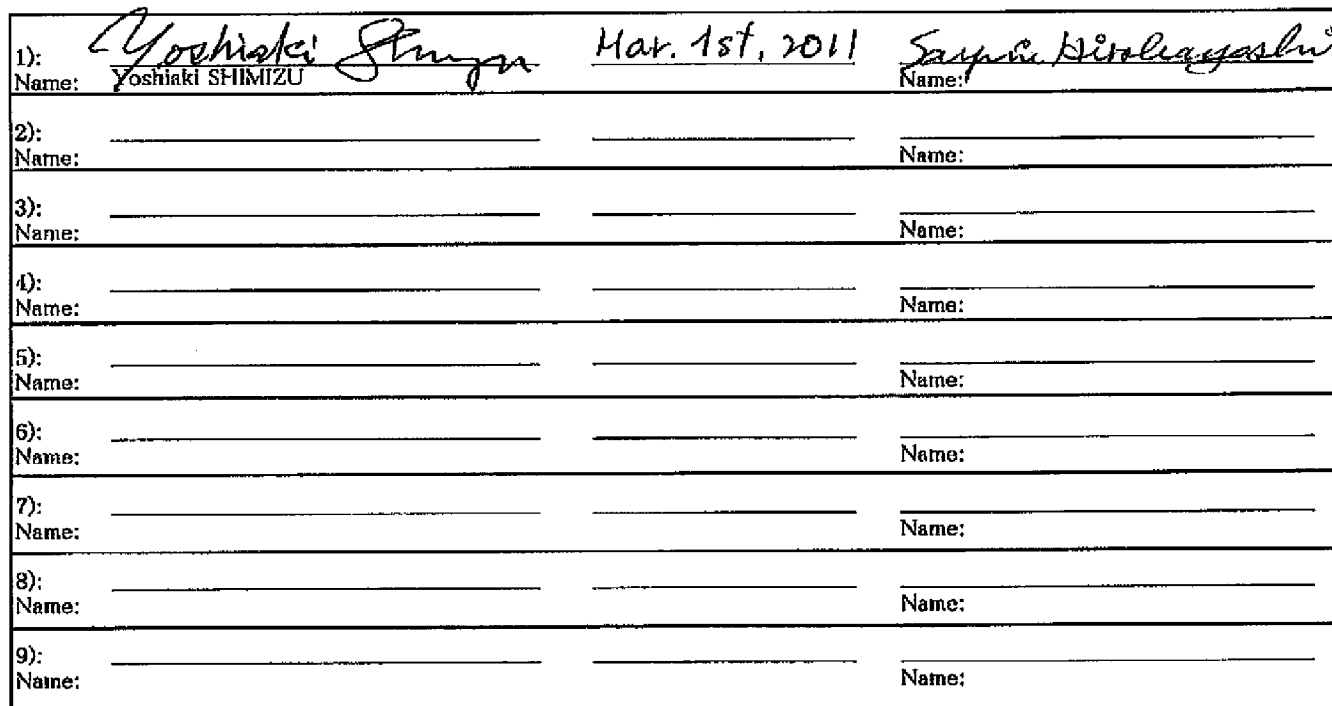 1): Yoshiaki Shimizu Mar. 1st, 2011 Hirobayashi
Name: Yoshiaki SHIMIZU Name:
2):
Name: Name:
3):
Name: Name:
4):
Name: Name:
5):
Name: Name:
6):
Name: Name:
7):
Name: Name:
8):
Name: Name:
9):
Name: Name: